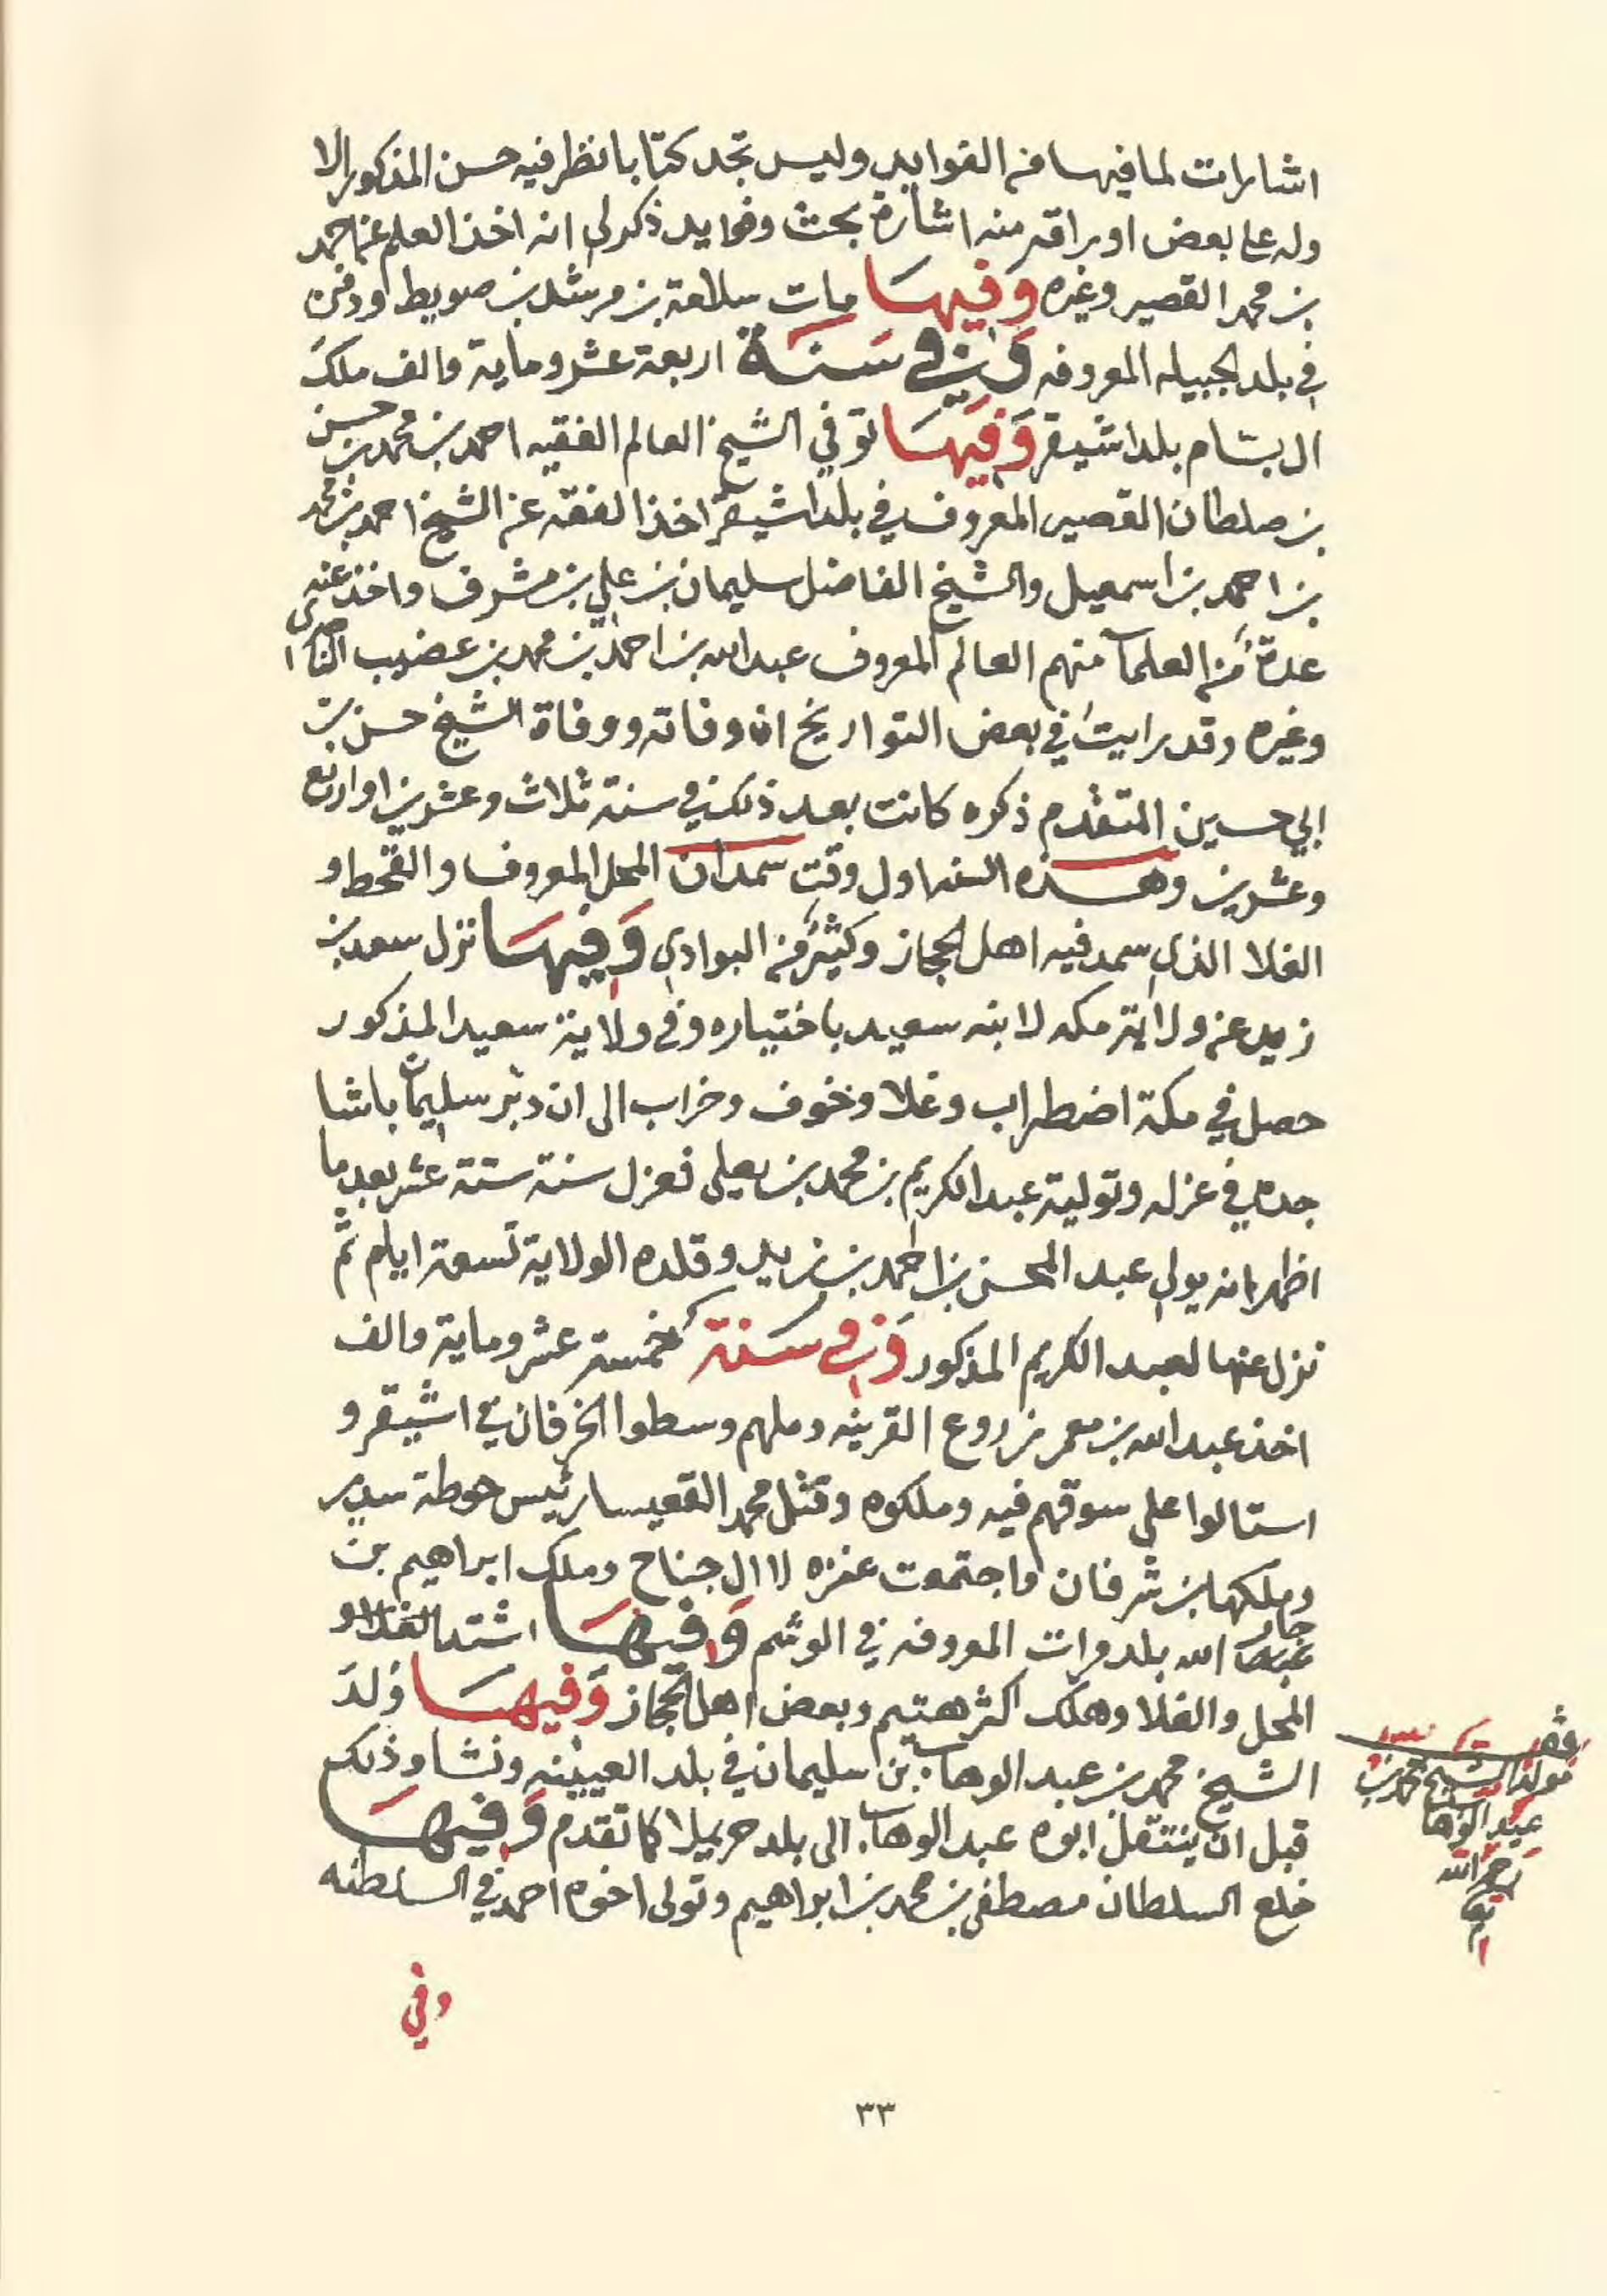 اشارات لما فيها من الفوايد وليس تجد كتابا نظر فيه حسن المذكور الا
وله على بعض اوراقه منه اشارة بحث وفوايد ذكر لي انه اخذ العلم عن احمد
بن محمد القصير وغيره وفيها مات سلامة بن مرشد بن صويط ودفن
في بلد الجبيله المعروفه وفي سنة اربعة عشر وماية والف ملك
ال بسام بلد اشيقر وفيها توفي الشيخ العالم الفقيه احمد بن محمد بن حسن
بن سلطان القصير المعروف في بلد اشيقر اخذ الفقه عن الشيخ احمد بن محمد
بن احمد بن اسمعيل والشيخ الفاضل سليمان بن علي بن مشرف واخذ عنه
عدة من العلماء منهم العالم المعروف عبد الله بن احمد بن محمد بن عضيب الناصري
وغيره وقد رايت في بعض التواريخ ان وفاته ووفاة الشيخ حسن بن
ابي حسين المتقدم ذكره كانت بعد ذلك في سنة ثلاث وعشرين او اربع
وعشرين وهذه السنه اول وقت سمدان المحل المعروف والقحط و
الغلا الذي سمد فيه اهل الحجاز وكثير من البوادي وفيها نزل سعد بن
زيد عن ولاية مكه لابنه سعيد باختياره وفي ولاية سعيد المذكور
حصل في مكة اضطراب وغلا وخوف وخراب الى ان دبر سليمان باشا
جده في عزله وتولية عبد الكريم بن محمد بن يعلى فعزل سنة ستة عشر بعد ما
اظهر انه يولي عبد المحسن بن احمد بن زيد وقلده الولاية تسعة ايام ثم
نزل عنها لعبد الكريم المذكور وفي سنة خمسة عشر وماية والف
اخذ عبد الله بن معمر زروع القرينه وملهم وسطوا الخرفان في اشيقر و
استالوا على سوقهم فيه وملكوه وقتل محمد القعيسا رئيس حوطة سدير
وملكها بن شرفان واجتمعت عنزه لاال جناح وملك ابراهيم بن
جار الله بلد مرات المعروفه في الوشم وفيها اشتد الغلا و
المحل والغلا وهلك اكثر هتيم وبعض اهل الحجاز وفيها ولد
الشيخ محمد بن عبد الوهاب بن سليمان في بلد العيينه ونشا وذلك
قبل ان ينتقل ابوه عبد الوهاب الى بلد حريملا كما تقدم وفيها
خلع السلطان مصطفى بن محمد بن ابراهيم وتولى اخوه احمد في السلطنه
مولد الشيخ محمد بن
عبد الوهاب
رحمه الله
تعا
وفي
٣٣